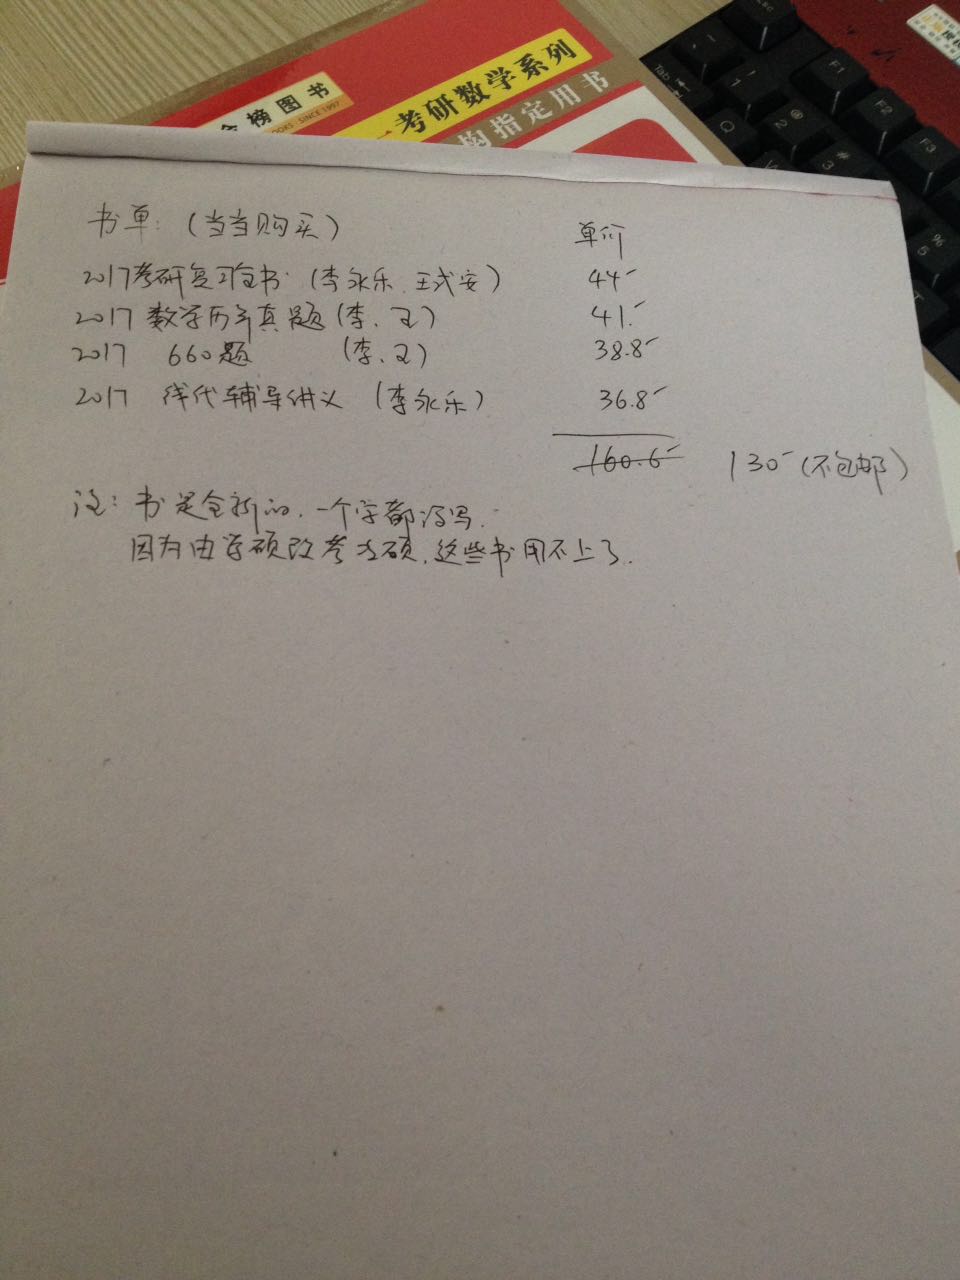 金榜图书
BOOKS · SINCE 1997
考研数学系列
构指定用书
Esc
F1
F2
F3
Tab
Q
书单:(当当购买) 单价
2017考研复习全书(李永乐、王式安) 44
2017数学历年真题(李、王) 41.
2017 660题 (李、王) 38.8
2017 线代辅导讲义(李永乐) 36.8
160.6 130(不包邮)
注:书是全新的,一个字都没写.
因为由学硕改考专硕,这些书用不上了.